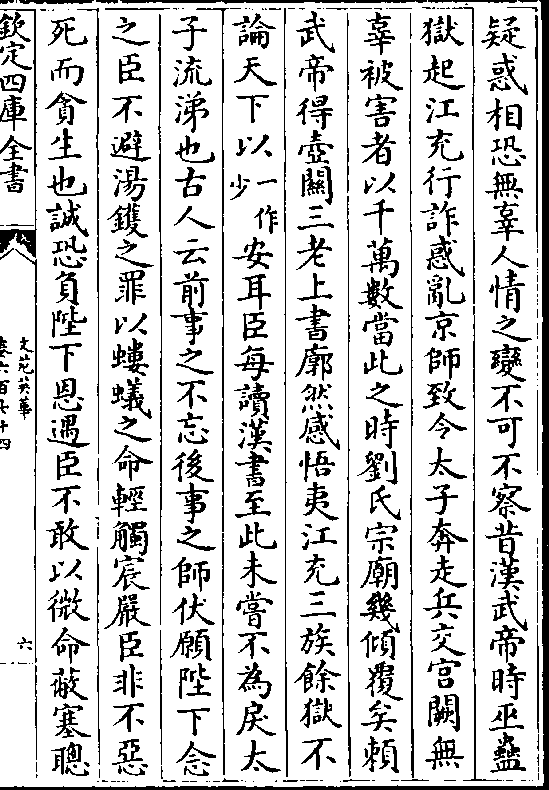 疑惑相恐無辜人情之變不可不察昔漢武帝時巫蠱
獄起江充行詐惑亂京師致令太子奔走兵交宮闕無
辜被害者以千萬數當此之時劉氏宗廟幾傾覆矣賴
武帝得壺關三老上書廓然感悟夷江充三族餘獄不
論天下以一作少安耳臣每讀漢書至此未嘗不為戾太
子流涕也古人云前事之不忘後事之師伏願陛下念
之臣不避湯鑊之罪以螻蟻之命輕觸宸嚴臣非不惡
死而貪生也誠恐負陛下恩遇臣不敢以微命蔽塞聰
欽定四庫全書
文苑英華
六